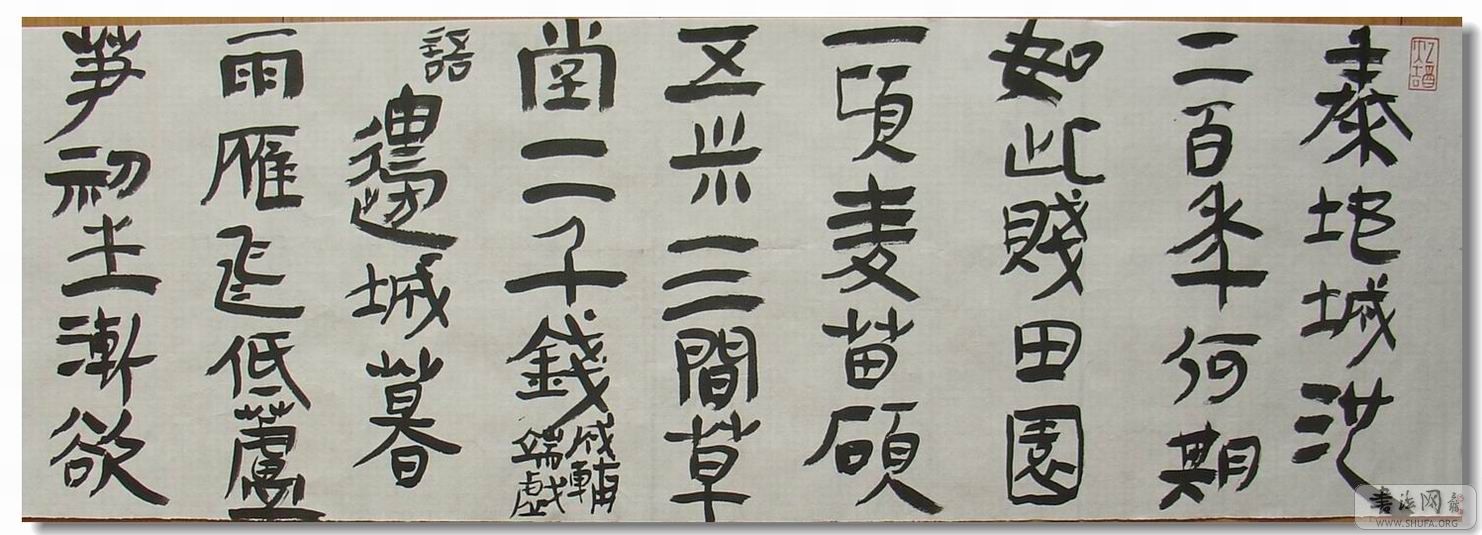 秦地城池
二百年何期
如此賤田園
一頃麦苗碩
五米三間草
堂二千錢戚輔端戲
語邊城暮
雨雁飛低蘆
笋初生漸欲
書法网
WWW.SHUFA.ORG